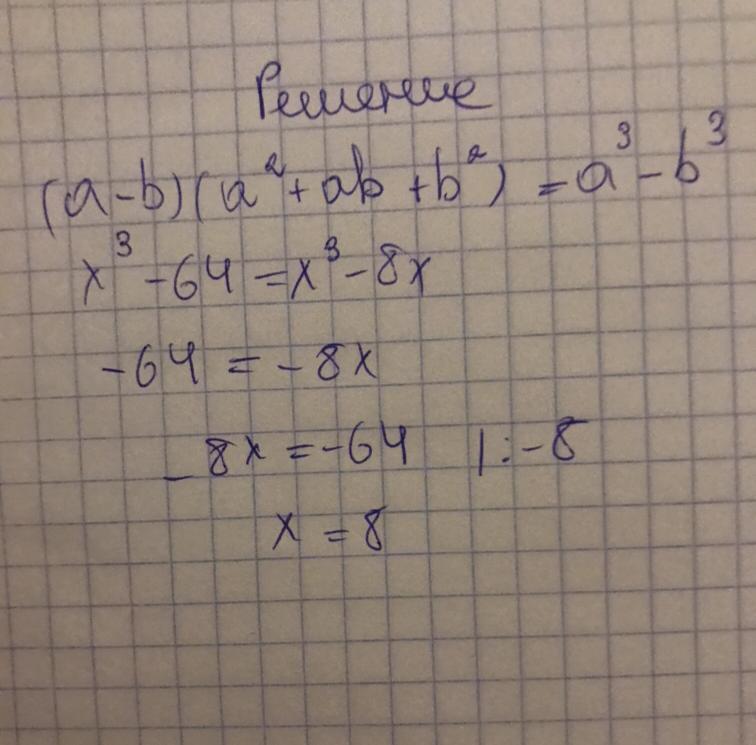 Решение
(a-b)(a²+ab+b²)=a³-b³
x³-64=x³-8x
-64=-8x
-8x=-64 |:-8
x=8